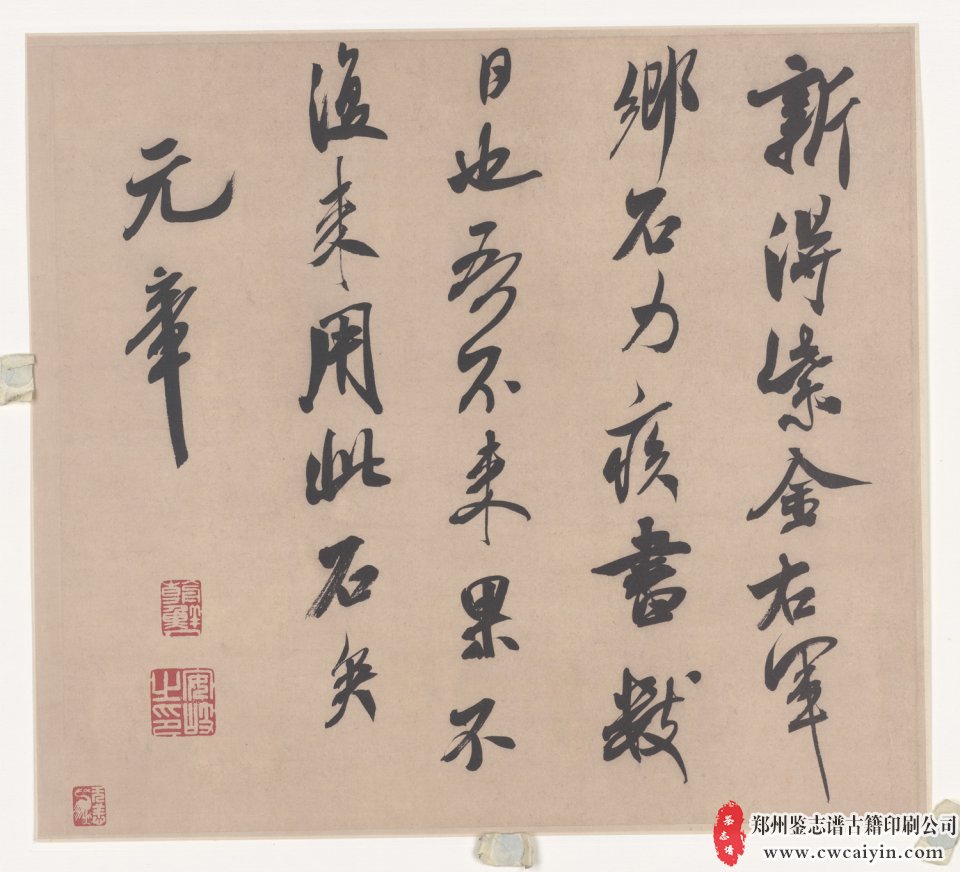 新得紫金右軍
鄉石力疾書數
日也吾不来果不
復来用此石矣
元章
安岐之印
鉴志谱
郑州鉴志谱古籍印刷公司
www.cwcaiyin.com